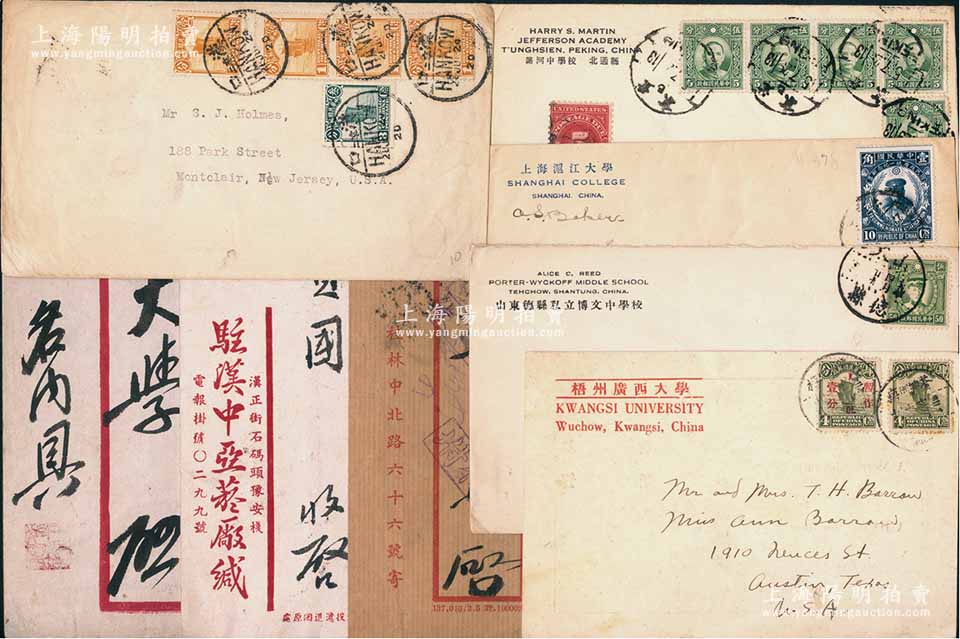 上海陽明拍賣
www.yangmingauction.com
HANKOW
HANKOW
HANKOW
HANKOW
Mr. S. J. Holmes,
188 Park Street
Montclair, New Jersey, U.S.A.
HARRY S. MARTIN
JEFFERSON ACADEMY
T'UNGHSIEN, PEKING, CHINA
潞河中學校 北通縣
UNITED STATES
POSTAGE DUE
上海滬江大學
SHANGHAI COLLEGE
SHANGHAI, CHINA.
A. S. Baker
10
REPUBLIC OF CHINA
ALICE C. REED
PORTER-WYCKOFF MIDDLE SCHOOL
TEHCHOW, SHANTUNG, CHINA.
山東德縣私立博文中學校
50
上海陽明拍賣
www.yangmingauction.com
梧州廣西大學
KWANGSI UNIVERSITY
Wuchow, Kwangsi, China
暫作
壹分
4
4
Mr and Mrs. T. H. Barrow
Miss Ann Barrow,
1910 Nueces St.
Austin, Texas
U.S.A
名內具
大學
啟
駐漢中亞菸廠緘
漢正街石碼頭豫安棧
電報掛號〇二九九號
投遞退回原處
國
收啓
林中北路六十六號寄
啓
上海陽明拍賣
www.yangmingauction.com
上海陽明拍賣
www.yangmingauction.com